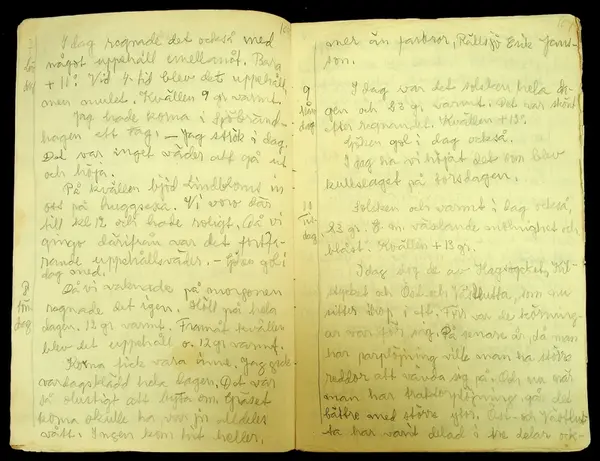 I dag regnade det också med
något uppehåll emellanåt. Barg
+11°. Vid 4-tid blev det uppehåll
men mulet. Kvällen 9 gr. varmt.
Jag hade korna i Sjöbränd-
hagen ett tag. — Jag strök i dag.
Det var inget väder att gå ut
och höja.
På kvällen bjöd Lindbloms in
oss på huggsexa. Vi voro där
till kl 12 och hade roligt. Då vi
gingo därifrån var det fortfa-
rande uppehållsväder. — Göken gol i
dag med.
8
sön
dag
Då vi vaknade på morgonen
regnade det igen. Höll på hela
dagen. 12 gr varmt. Framåt kvällen
blev det uppehåll o. 12 gr varmt.
Korna fick vara inne. Jag gick
vardagsklädd hela dagen. Det var
så olustigt att byta om. Gräset
korna skulle ha var ju alldeles
vått. Ingen kom hit heller,
mer än farbror, Rällsjö Erik Jans-
son.
9
mån
dag
I dag var det solsken hela da-
gen och 23 gr. varmt. Det var skönt
efter regnandet. Kvällen +13°.
Göken gol i dag också.
I dag ha vi höjat det som blev
kullslaget på torsdagen.
10
tis-
dag
Solsken och varmt i dag också,
23 gr. E.m. växlande molnighet och
blåst. Kvällen +13 gr.
I dag slog de av Hagstycket,
stycket och Öst och Västhutta, som nu
sitter ihop i ett. Förr var de körning-
ar var för sig. På senare år, då man
har parplöjning ville man ha större
reddor att vända sig på. Och nu när
man har traktorplöjning går det
bättre med större ytor. Öst- och Västhut-
ta har varit delad i tre delar ock-